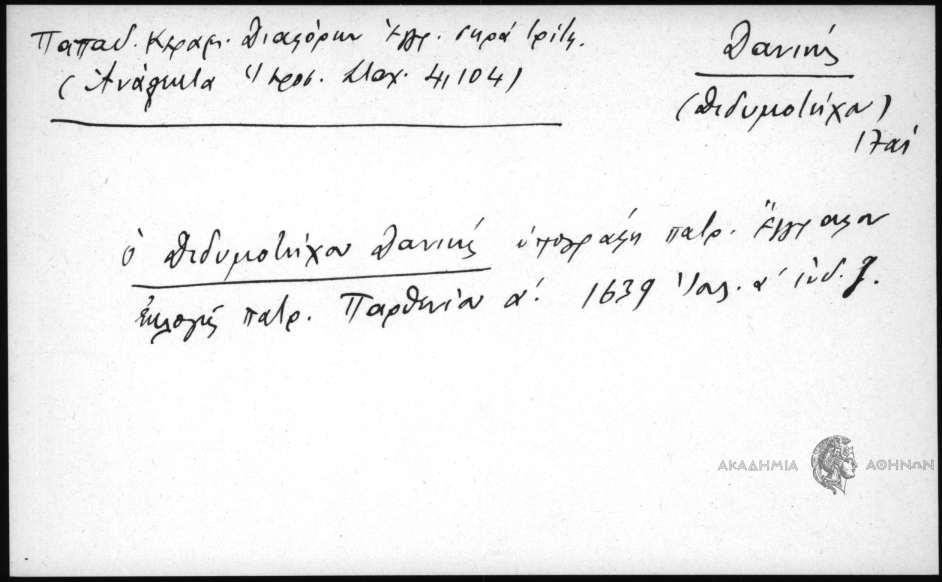 Παπαδ. Κεραμ. Διαφόρων Ἔγγρ. σειρά τρίτη.
(Ἀνάλεκτα Ἱεροσ. Σταχ. 4, 104)
Δανιήλ
(Διδυμοτείχου)
17 αἰ
ὁ Διδυμοτείχου Δανιήλ ὑπογράφει πατρ. Ἔγγραφον
Ἐκλογῆς πατρ. Παρθενίου α΄. 1639 Ἰουλ. α΄ ἰνδ. ζ.
ΑΚΑΔΗΜΙΑ ΑΘΗΝΩΝ